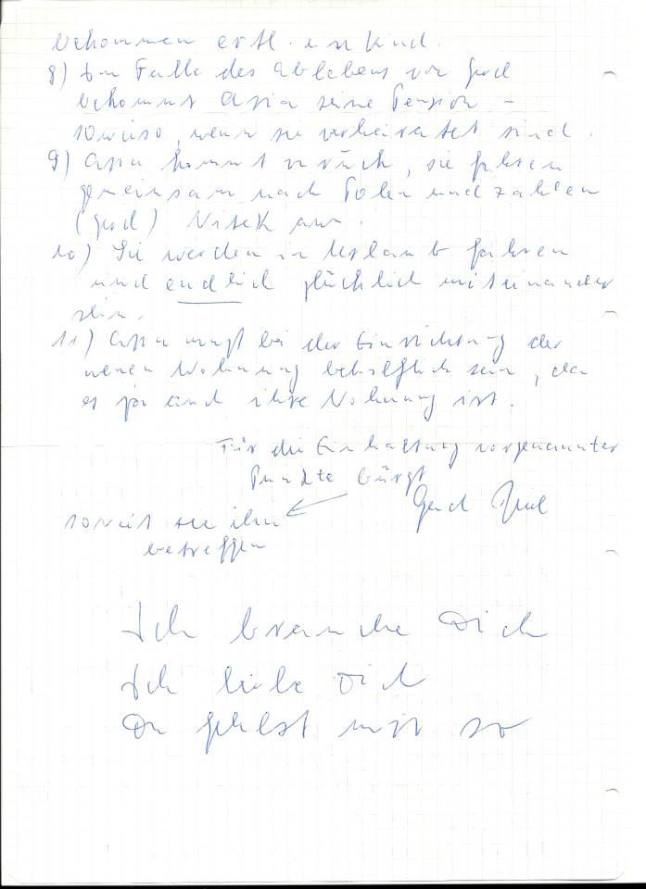 bekommen evtl. ein Kind.
8) Im Falle des Ablebens von Gerd
bekommt Asia seine Pension –
sowieso, wenn sie verheiratet sind.
9) Asia kommt zurück, sie fahren
gemeinsam nach Polen und zahlen
(Gerd) Nitek aus.
10) Sie werden in Urlaub fahren
und endlich glücklich miteinander
sein.
11) Asia mußt bei der Einrichtung der
neuen Wohnung behilflich sein, da
es ja auch ihre Wohnung ist.
Für die Einhaltung vorgenannter
Punkte bürgt
Gerd
soweit sie ihn
betreffen
Ich brauche Dich
Ich liebe Dich
Du fehlst mir so